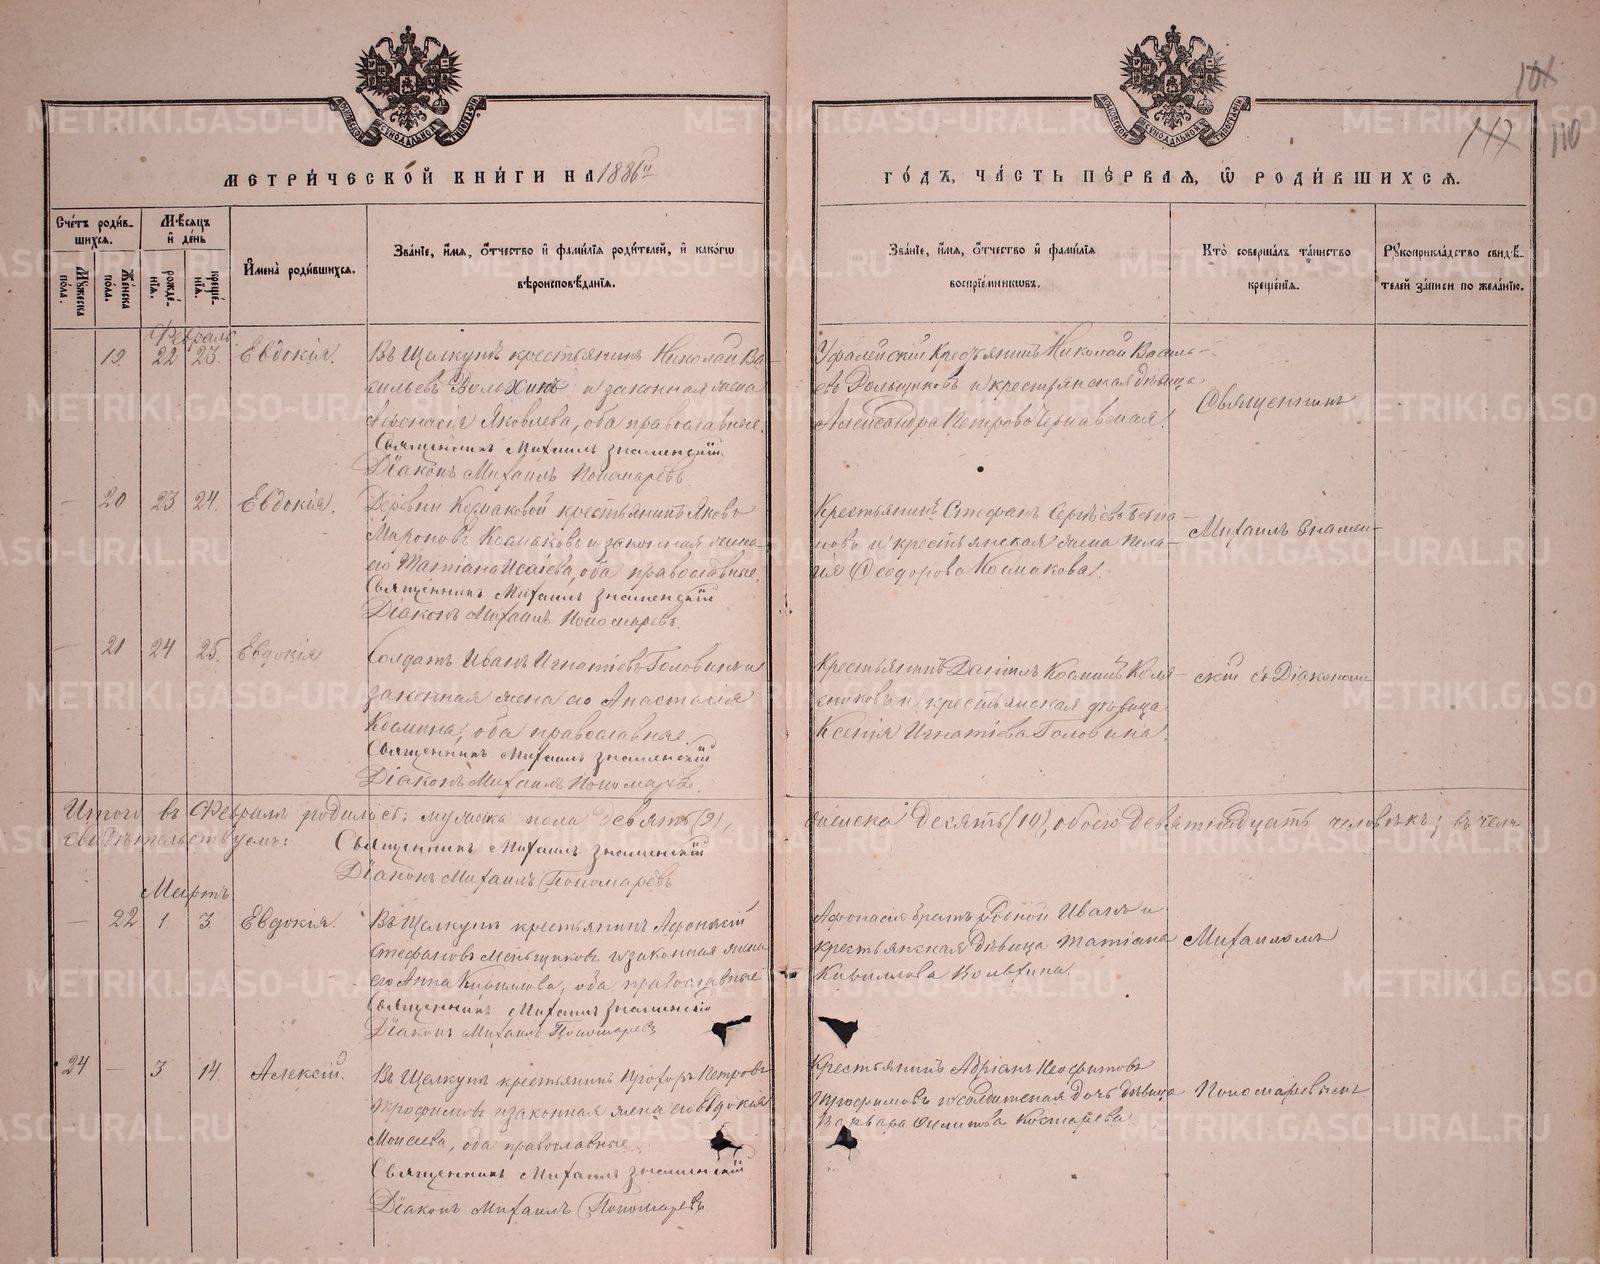 108
147 110
МЕТРИ́ЧЕСКОЙ КНИ́ГИ НА 1886й
ГО́ДЪ, ЧА́СТЬ ПЕ́РВАЯ, Ѿ РОДИ́ВШИХСЯ.
Сче́тъ роди́в-
шихся.
Му́жеска по́ла.
Же́нска по́ла.
Мѣ́сяцъ
и де́нь
рожде́-
нїя.
креще́-
нїя.
И҆мена̀ роди́вшихся.
Зва́нїе, и҆́мя, ѻ҆́тчество и҆ фами́лїя роди́телей, и҆ како́гѡ
вѣроисповѣ́данїя.
Зва́нїе, и҆́мя, ѻ҆́тчество и҆ фами́лїя
воспрїе́мникѡвъ.
Кто̀ соверша́лъ та́инство
креще́нїя.
Рꙋкоприкла́дство свидѣ́-
телей за́писи по жела́нїю.
Февраль
— 19 22 23. Евдокія. Въ Щелкунѣ крестьянинъ Николай Ва-
сильевъ Вольхинъ и законная жена
Афонасія Яковлева, оба православные.
Священникъ Михаилъ Знаменскій
Діаконъ Михаилъ Пономаревъ.
Уфалейскій Крестьянинъ Николай Василь-
евъ и крестьянская дѣвица
Александра Петрова Чернавская.
Священникъ
— 20 23 24. Евдокія. Деревни Космаковой крестьянинъ Яковъ
Мироновъ Космаковъ и законная жена
его Татіана Исаіева, оба православные.
Священникъ Михаилъ Знаменскій
Діаконъ Михаилъ Пономаревъ.
Крестьянинъ Стефанъ Сергѣевъ
и крестьянская жена Пела-
гія Ѳеодорова Космакова.
Михаилъ Знамен-
— 21 24 25. Евдокія Солдатъ Иванъ Игнатіевъ Головинъ и
законная жена его Анастасія
Космина, оба православные.
Священникъ Михаилъ Знаменскій
Діаконъ Михаилъ Пономаревъ.
Крестьянинъ Даніилъ Косминъ Коля-
сниковъ и крестьянская дѣвица
Ксенія Игнатіева Головина.
скій съ Діакономъ
Итого въ Февралѣ родилось: мужеска пола девять (9), женска десять (10), обоего девятнадцать человѣкъ; въ чемъ
свидѣтельствуемъ: Священникъ Михаилъ Знаменскій
Діаконъ Михаилъ Пономаревъ
Мартъ
— 22 1 3 Евдокія. Въ Щелкунѣ крестьянинъ Афонасій
Стефановъ Меньщиковъ и законная жена
его Анна Кириллова, оба православные
Священникъ Михаилъ Знаменскій
Діаконъ Михаилъ Пономаревъ
Афонасію братъ родной Иванъ и
крестьянская дѣвица Татіана
Кириллова Вольхина.
Михаиломъ
24 — 3 14. Алексій. Въ Щелкунѣ крестьянинъ Прохоръ Петровъ
Трофимовъ и законная жена его Евдокія
Моисеева, оба православные.
Священникъ Михаилъ Знаменскій
Діаконъ Михаилъ Пономаревъ
Крестьянинъ Адріанъ Неофитовъ
Трофимовъ и солдатская дочь дѣвица
Варвара Филипова Костарева.
Пономаревымъ
METRIKI.GASO-URAL.RU